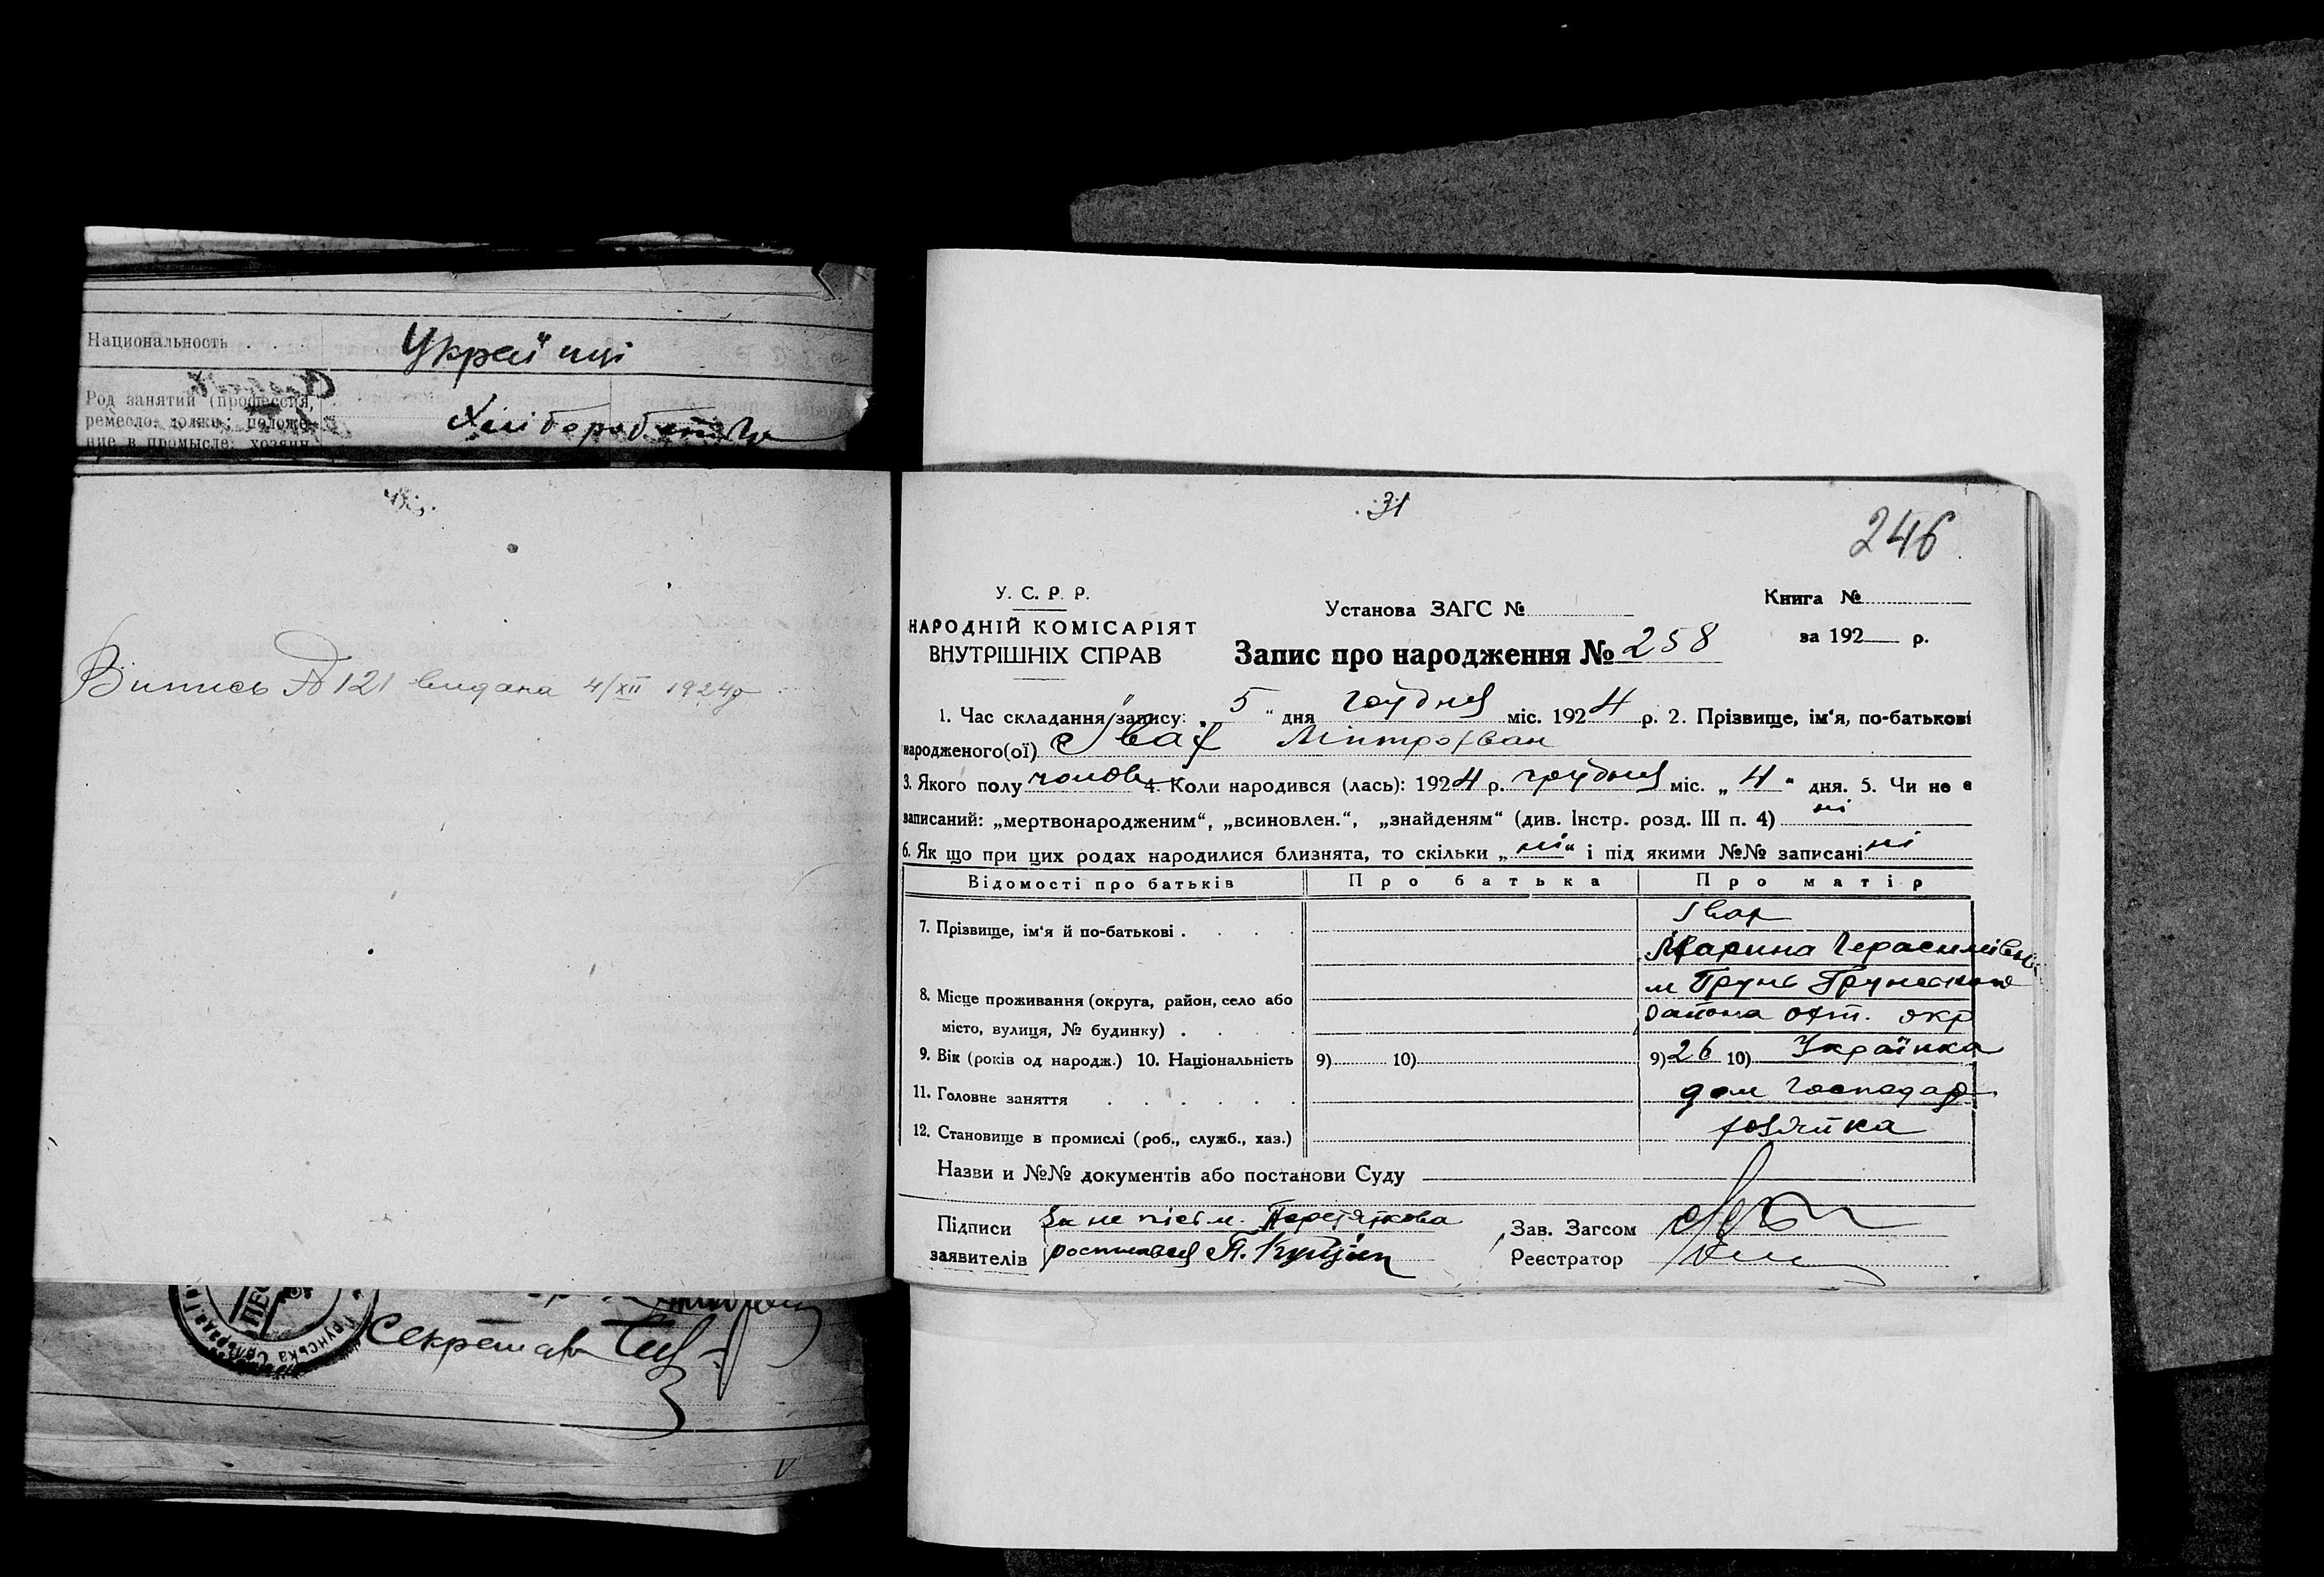 Национальность . . . Українці
Род занятий (профессия,
ремесло, должн.; положе-
ние в промысле: хозяин
Хліборобство
Випись № 121 видана 4/XII 1924р
Секретар
31
246
У. С. Р. Р.
НАРОДНІЙ КОМІСАРІЯТ
ВНУТРІШНІХ СПРАВ
Установа ЗАГС №
Книга №
за 192 р.
Запис про народження № 258
1. Час складання запису: „ 5 “ дня грудня міс. 1924 р. 2. Прізвище, ім‘я, по-батькові
народженого(ої) Івах Мітрофван
3. Якого полу чолов 4. Коли народився (лась): 1924 р. грудня міс. „ 4 “ дня. 5. Чи не є
записаний: „мертвонародженим“, „всиновлен.“, „знайденям“ (див. Інстр. розд. III п. 4) ні
6. Як що при цих родах народилися близнята, то скільки „ ні “ і під якими №№ записані ні
Відомості про батьків Про батька Про матір
7. Прізвище, ім‘я й по-батькові . . . . Івах
Марина Герасимівна
8. Місце проживання (округа, район, село або м Грунь Грунського
місто, вулиця, № будинку) . . . района охт. окр
9. Вік (років од народж.) 10. Національність 9) 10) 9) 26 10) Українка
11. Головне заняття . . . . . . дом господар
12. Становище в промислі (роб., служб., хаз.) хозяйка
Назви и №№ документів або постанови Суду
Підписи За не письм.
заявителів росписався
Зав. Загсом
Реєстратор